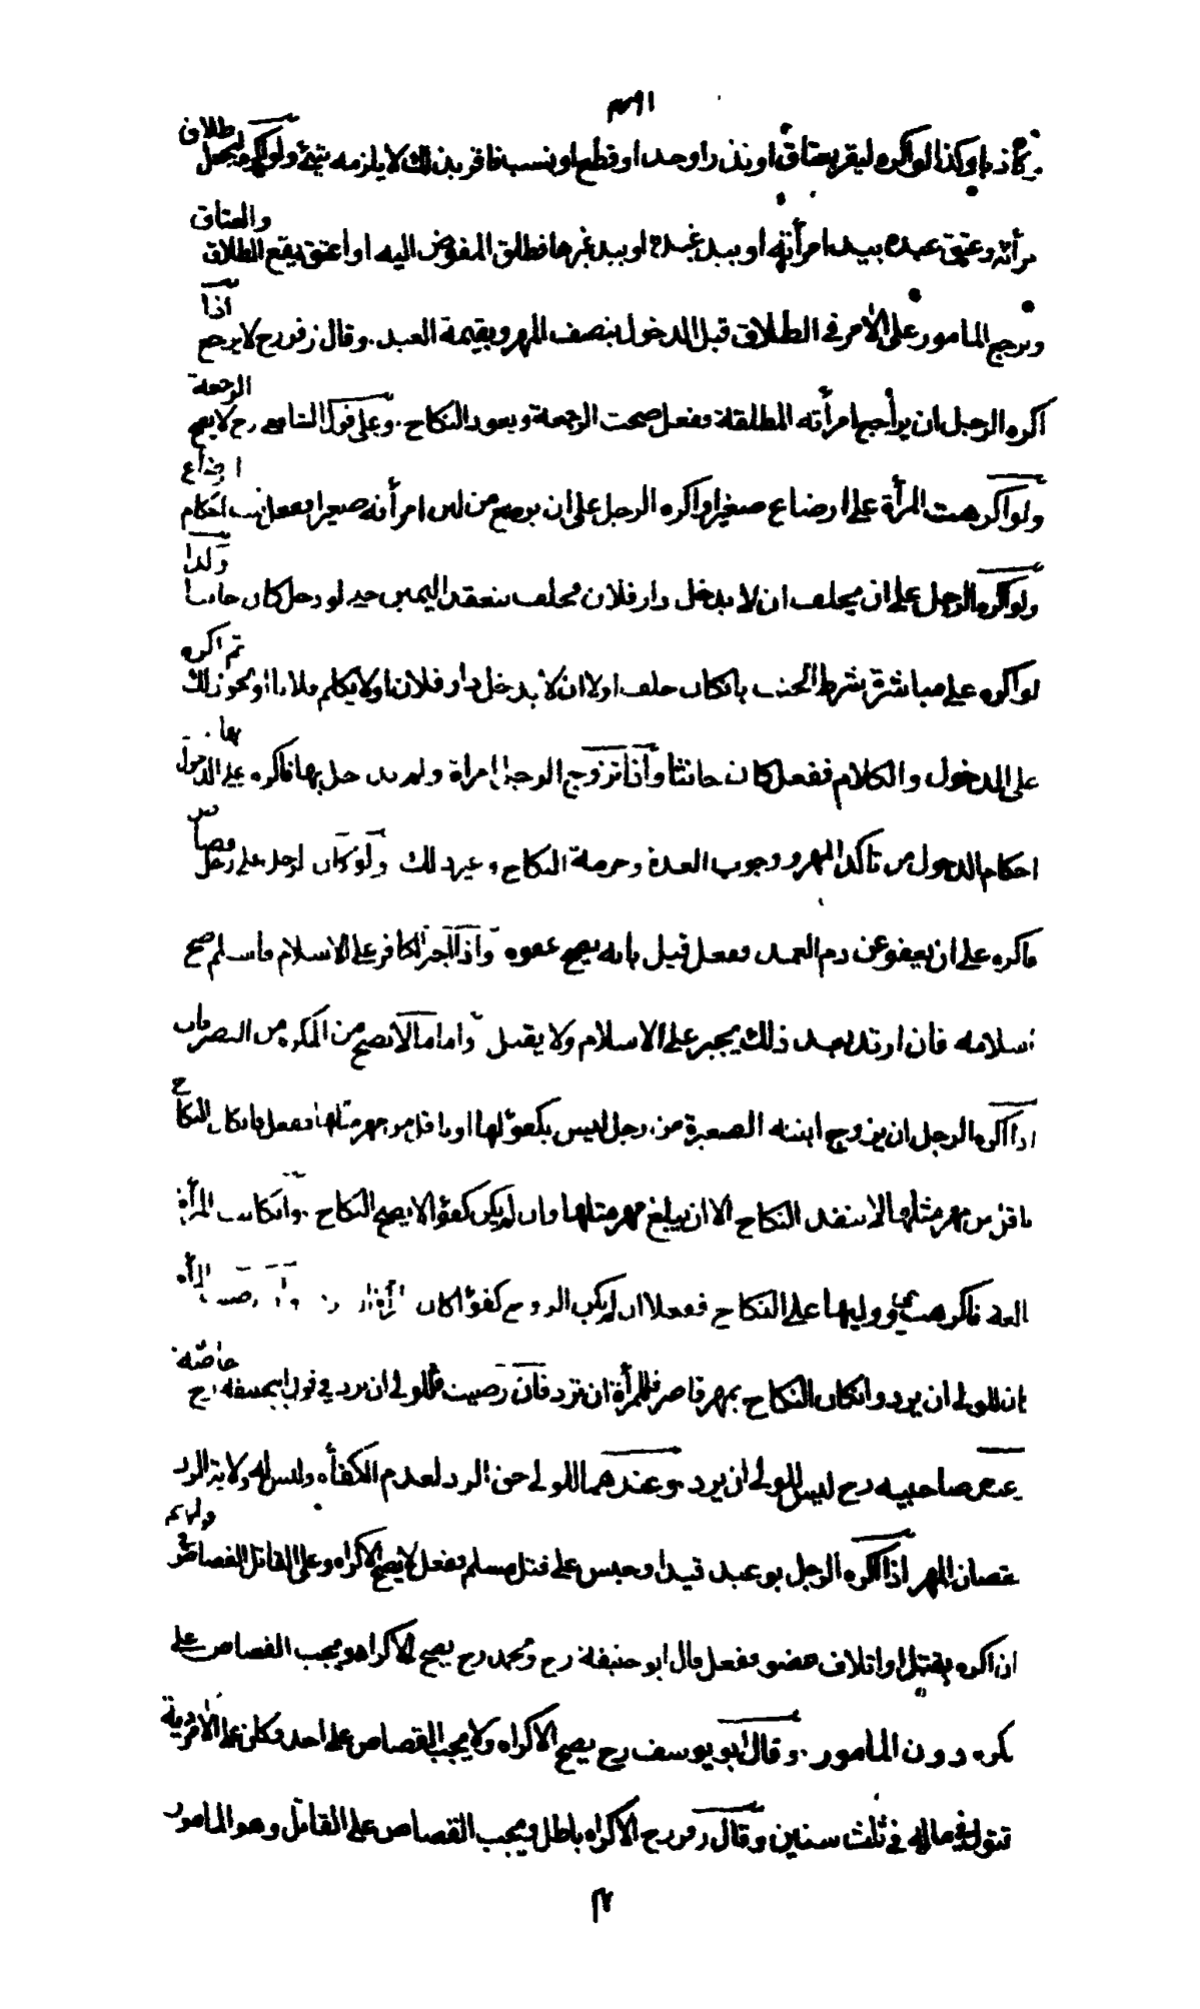 كاذبا وكذا لو اكره ليقر بعتاق او نذر او حد او قطع او نسب فاقر بذلك لا يلزمه شئ ولو اكره ليجعل طلاق
مرأته وعتق عبده بيد امرأته او بيد عبده او بيد غيرها فطلق المفوض اليه او اعتق يقع الطلاق والعتاق
ويرجع المامور على الآمر في الطلاق قبل الدخول بنصف المهر وبقيمة العبد . وقال زفر رح لا يرجع اذا
اكره الرجل ان يراجع امرأته المطلقة ففعل صحت الرجعة ويعود النكاح . وعلى قول الشافعي رح لا يصح الرجعة
ولو اكرهت المرأة على ارضاع صغير او اكره الرجل على ان يرضع من لبن امرأته صغيرا ففعل احكام ارضاع
ولو اكره الرجل على ان يحلف ان لا يدخل دار فلان فحلف ينعقد اليمين حتى لو دخل كان حانثا وكذا
لو اكره على مباشرة شرط الحنث بان كان حلف اولا ان لا يدخل دار فلان او لا يكلم فلانا او نحو ذلك ثم اكره
على الدخول والكلام ففعل كان حانثا واذا تزوج الرجل امرأة ولم يدخل بها فاكره على الدخول بها
احكام الدخول من تاكد المهر ووجوب العدة وحرمة النكاح وغير ذلك ولو كان لرجل على رجل قصاص
فاكره على ان يعفو عن دم العمد ففعل قيل بانه يصح عفوه واذا اجبر الكافر على الاسلام فاسلم صح
اسلامه فان ارتد بعد ذلك يجبر على الاسلام ولا يقتل واما ما لا يصح من المكره من التصرفات
اذا اكره الرجل ان يزوج ابنته الصغيرة من رجل ليس بكفؤ لها او باقل من مهر مثلها ففعل فان كان النكاح
باقل من مهر مثلها لا ينفذ النكاح الا ان يبلغ مهر مثلها وان لم يكن كفؤا لا يصح النكاح . وان كانت المرأة
فاكرهت هي ووليها على النكاح ففعلا ان لم يكن الزوج كفؤا كان
ان للولي ان يرد وان كان النكاح بمهر قاصر فللمرأة ان ترد فان رضيت فللولي ان يرد في قول ابيحنيفة رح خاصة
صاحبيه رح ليس للولي ان يرد . وعندهما للولي حق الرد لعدم الكفأة وليس له ولاية الرد
نقصان المهر اذا اكره الرجل بوعيد قيد او حبس على قتل مسلم ففعل لا يصح الاكراه وعلى القاتل القصاص في قولهم
ان اكره بقتل او اتلاف عضو ففعل قال ابو حنيفة رح ومحمد رح يصح الاكراه ويجب القصاص على
مكره دون المامور . وقال ابو يوسف رح يصح الاكراه ولا يجب القصاص على احد وكان على الآمر دية
في ماله في ثلث سنين وقال زفر رح الاكراه باطل ويجب القصاص على القاتل وهو المامور